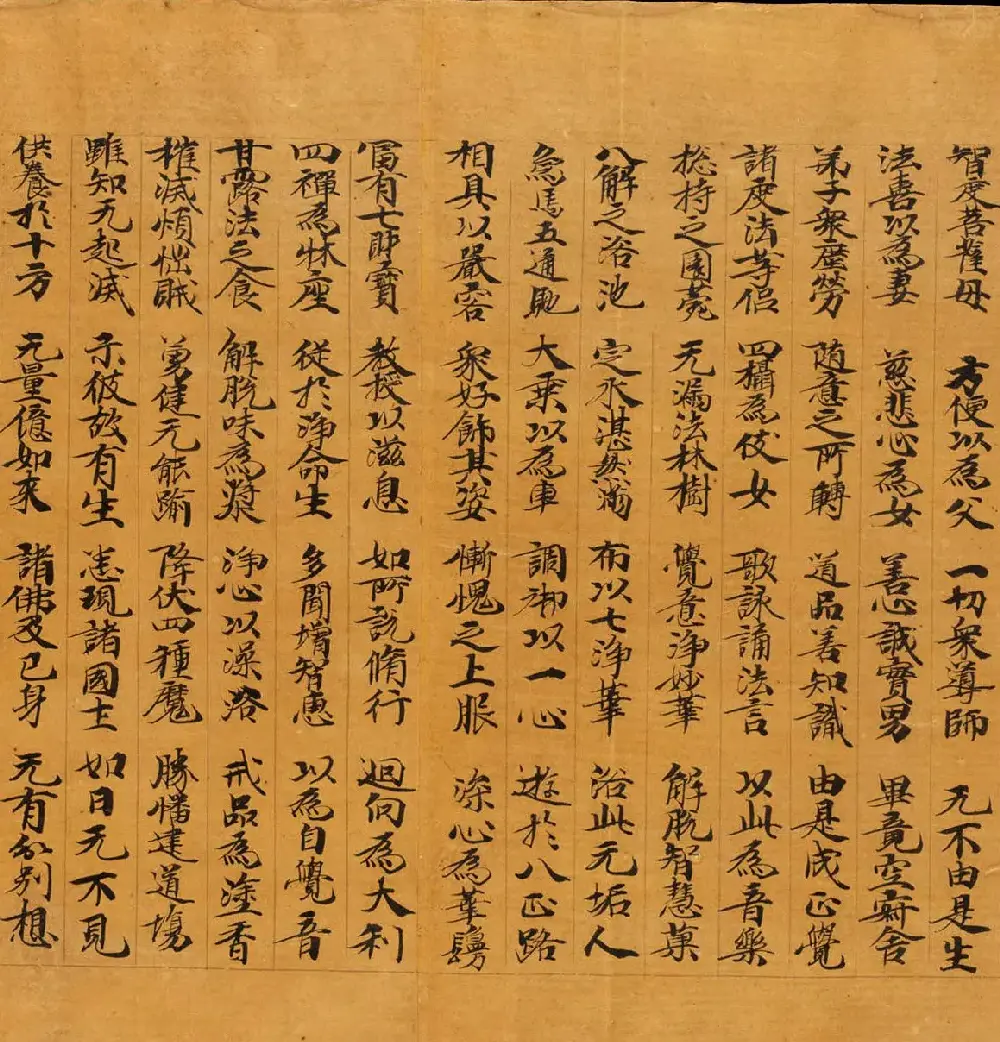 智度菩薩母 方便以為父 一切衆導師 无不由是生
法喜以為妻 慈悲心為女 善心誠實男 畢竟空寂舍
弟子衆塵勞 随意之所轉 道品善知識 由是成正覺
諸度法等侣 四攝為伎女 歌詠誦法言 以此為音樂
揔持之園菀 无漏法林樹 覺意浄妙華 解脱智慧菓
八解之浴池 定水湛然満 布以七浄華 浴此无垢人
為馬五通馳 大乗以為車 調御以一心 遊於八正路
相具以嚴容 衆好飾其姿 慚愧之上服 深心為華鬘
冨有七財寳 教授以滋息 如所説脩行 迴向為大利
四禪為牀座 従於浄命生 多聞増智恵 以為自覺音
甘露法之食 解脱味為漿 浄心以澡浴 戒品為塗香
摧滅煩惱賊 勇健无能踰 降伏四種魔 勝幡建道場
雖知无起滅 示彼故有生 悉現諸國土 如日无不見
供養於十方 无量億如来 諸佛及己身 无有分别想